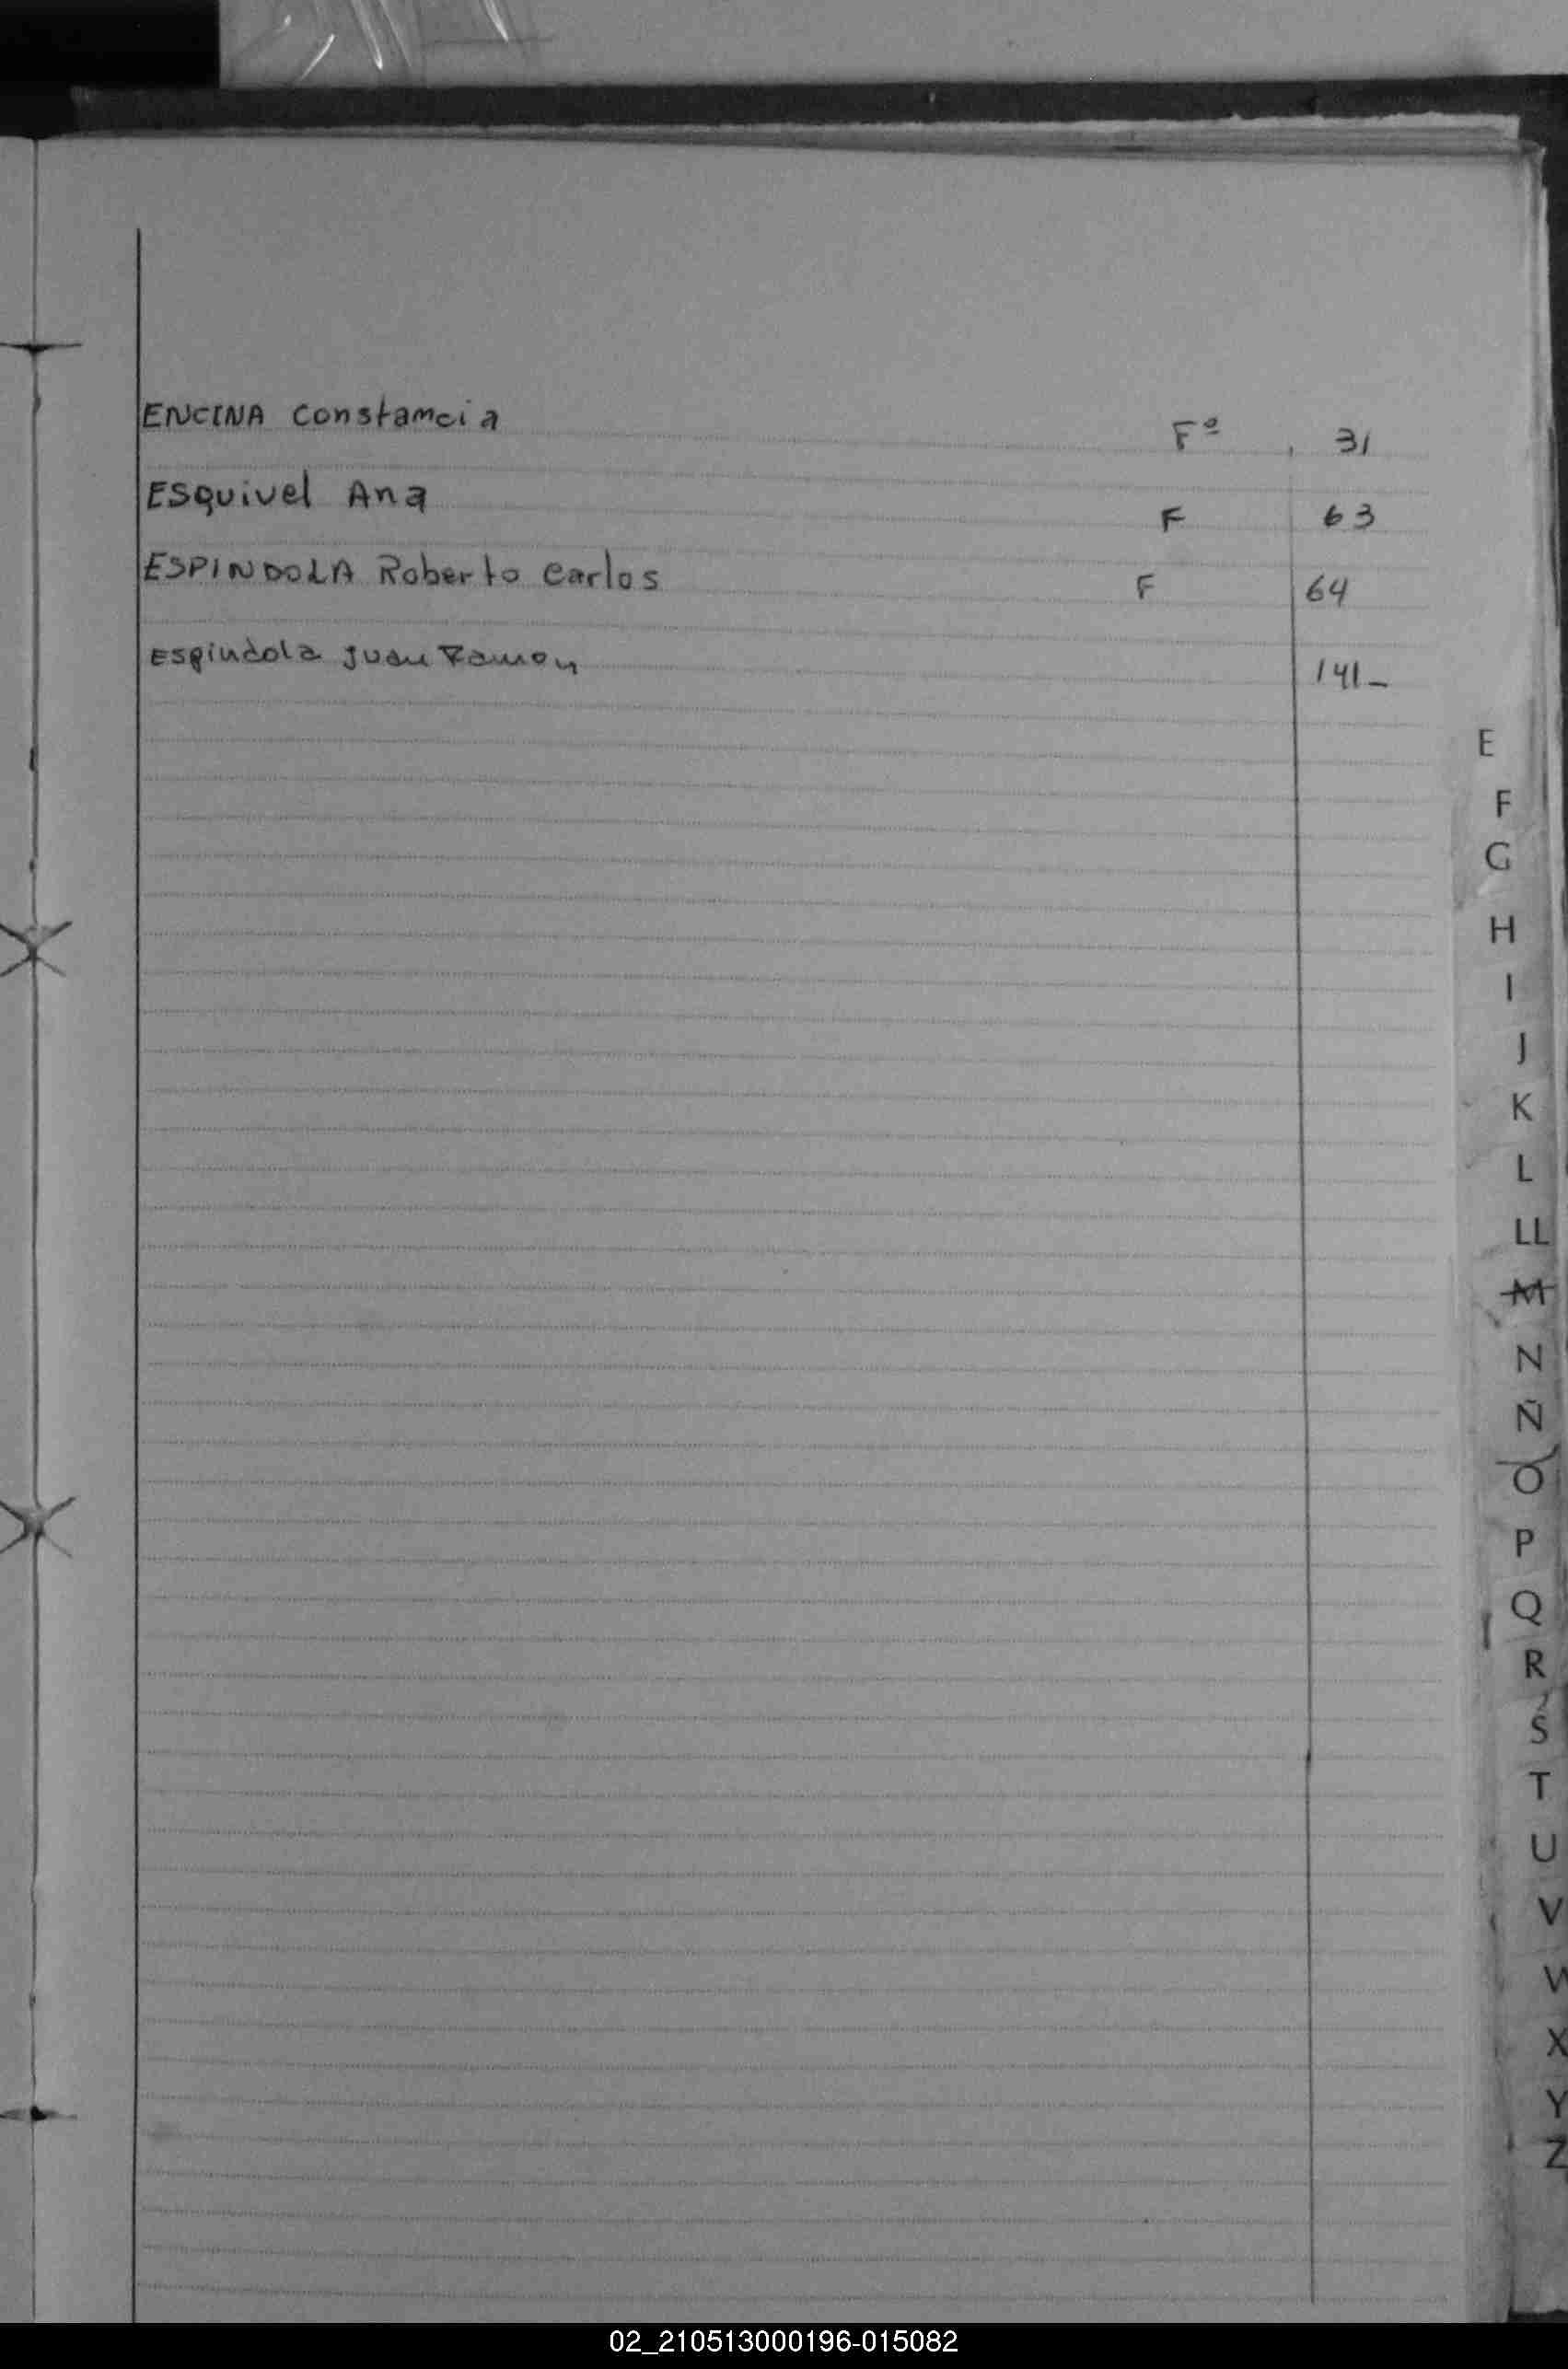 ENCINA Constancia Fº 31
Esquivel Ana F 63
ESPINDOLA Roberto Carlos F 64
Espindola Juan Ramon 141-
E
F
G
H
I
J
K
L
LL
M
N
Ñ
O
P
Q
R
S
T
U
V
W
X
Y
Z
02_210513000196-015082